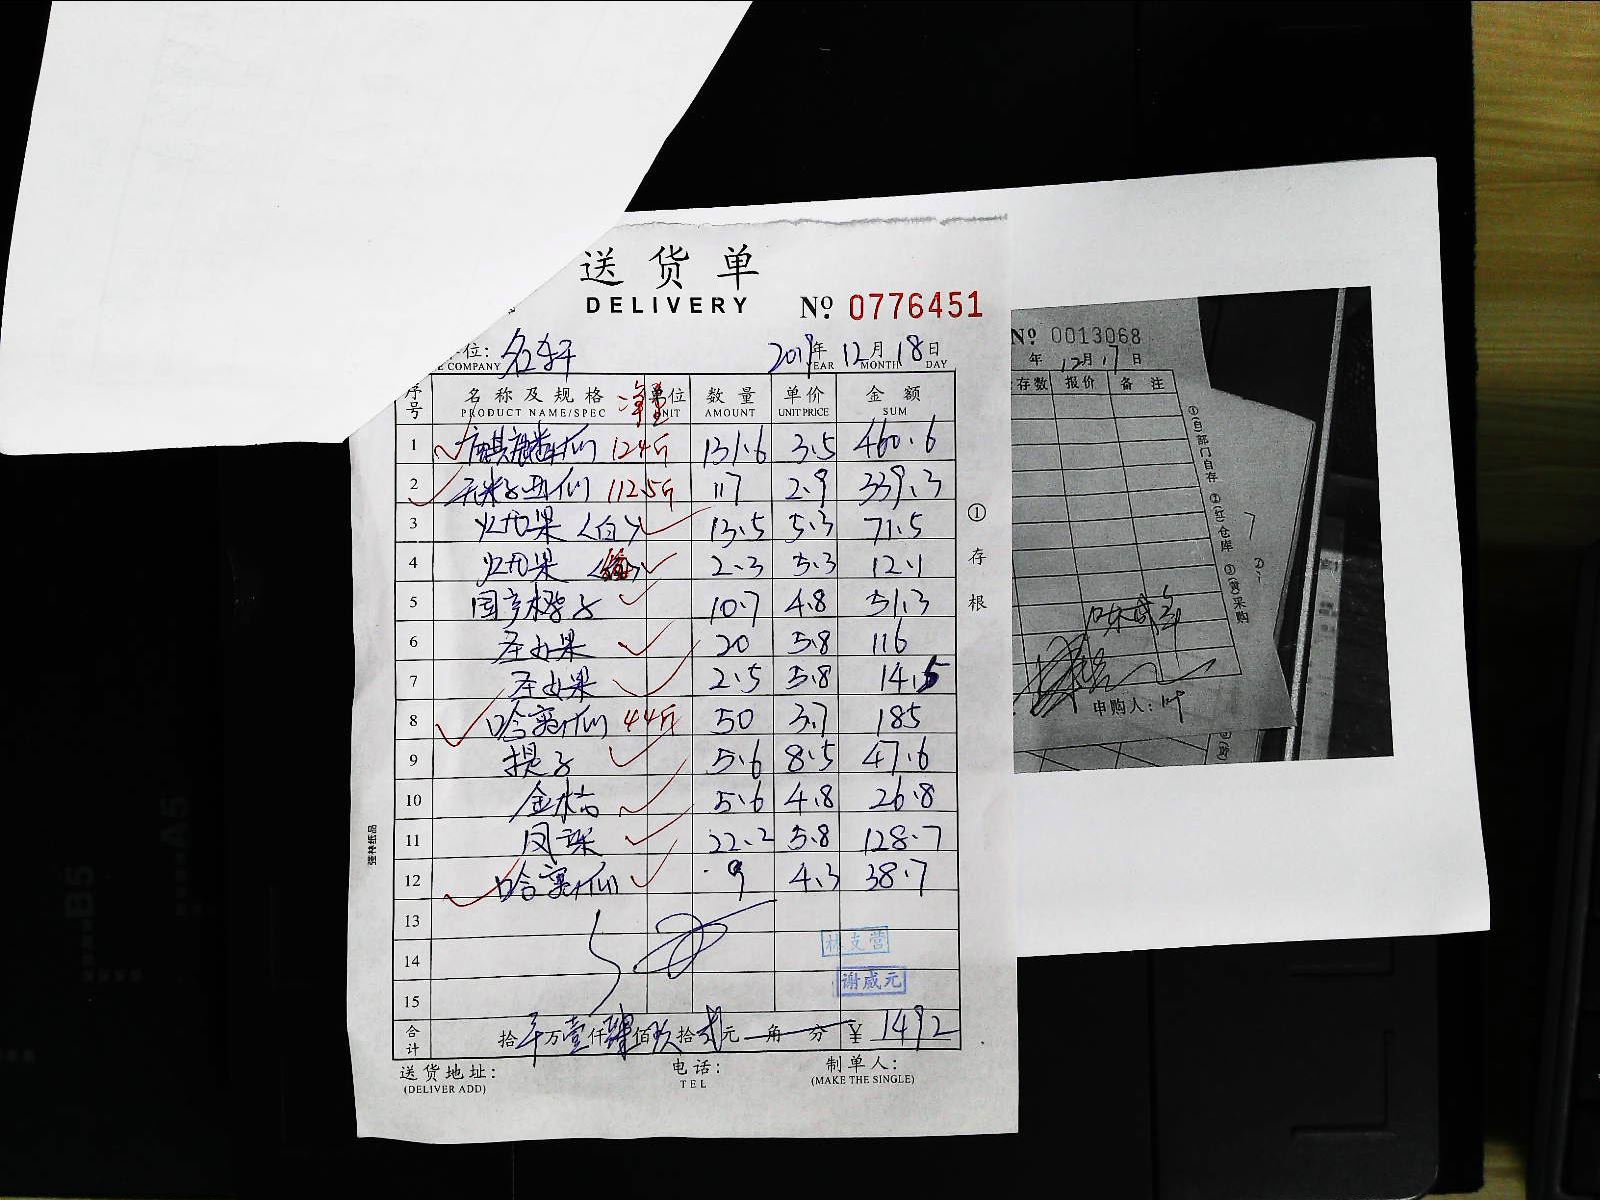 送货单
DELIVERY № 0776451
位: 名轩 2019年 12月 18日
COMPANY YEAR MONTH DAY
序号 名称及规格 单位 净重 数量 单价 金额
PRODUCT NAME/SPEC UNIT AMOUNT UNIT PRICE SUM
1 麒麟瓜 124斤 131.6 3.5 460.6
2 112.5斤 117 2.9 339.3
3 火龙果(白) 13.5 5.3 71.5
4 火龙果 2.3 5.3 12.1
5 国产橙子 10.7 4.8 51.3
6 圣女果 20 5.8 116
7 圣女果 2.5 5.8 14.5
8 哈密瓜 44斤 50 3.7 185
9 提子 5.6 8.5 47.6
10 金桔 5.6 4.8 26.8
11 凤梨 22.2 5.8 128.7
12 哈密瓜 9 4.3 38.7
13
14
15
林支营
谢威元
合计 拾 万壹仟肆佰玖拾贰元 角 分 ¥ 1492
送货地址: 电话: 制单人:
(DELIVER ADD) TEL (MAKE THE SINGLE)
①存根
强林纸品
№ 0013068
年 12月 17日
存数 报价 备注
①(白)部门自存 ②(红)仓库 ③(黄)采购
申购人: 叶
B5
A5